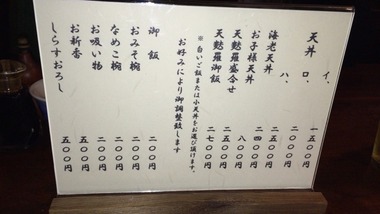 天丼 イ、 一五〇〇円
ロ、 二〇〇〇円
ハ、 二五〇〇円
海老天丼 二四〇〇円
お子様天丼 八〇〇円
天麩羅盛合せ 二五〇〇円
天麩羅御飯 二七〇〇円
※ 白いご飯または小天丼をお選び頂けます。
お好みにより御調整致します
御飯 二〇〇円
おみそ椀 二〇〇円
なめこ椀 二〇〇円
お吸い物 二〇〇円
お新香 五〇〇円
しらすおろし 五〇〇円